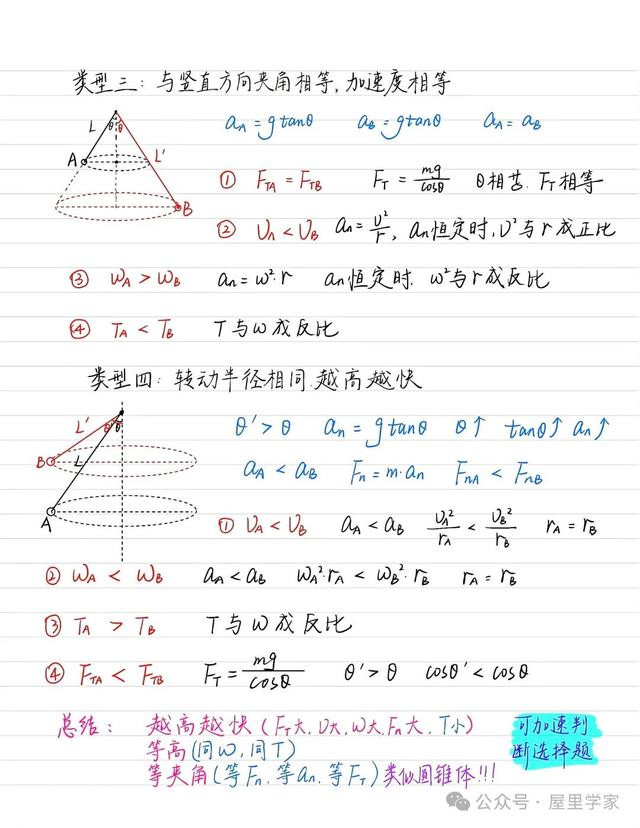 类型三：与竖直方向夹角相等，加速度相等
L θ θ
A L'
B
aA = gtanθ aB = gtanθ aA = aB
① FTA = FTB FT = mg/cosθ θ相苦. FT相等
② υA < υB an = υ²/r, an恒定时, υ²与r成正比
③ ωA > ωB an = ω²·r an恒定时. ω²与r成反比
④ TA < TB T与ω成反比
类型四：转动半径相同.越高越快
L' θ' θ
B L
A
θ' > θ an = gtanθ θ↑ tanθ↑ an↑
aA < aB Fn = m·an FnA < FnB
① υA < υB aA < aB υA²/rA < υB²/rB rA = rB
② ωA < ωB aA < aB ωA²·rA < ωB²·rB rA = rB
③ TA > TB T与ω成反比
④ FTA < FTB FT = mg/cosθ θ' > θ cosθ' < cosθ
总结： 越高越快 (FT大, υ大, ω大, Fn大, T小)
等高(同ω, 同T)
等夹角(等Fn, 等an, 等FT) 类似圆锥体!!!
可加速判
断选择题
公众号·屋里学家